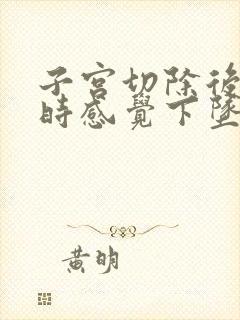 子宮切除後
時感覺下墜
黃明